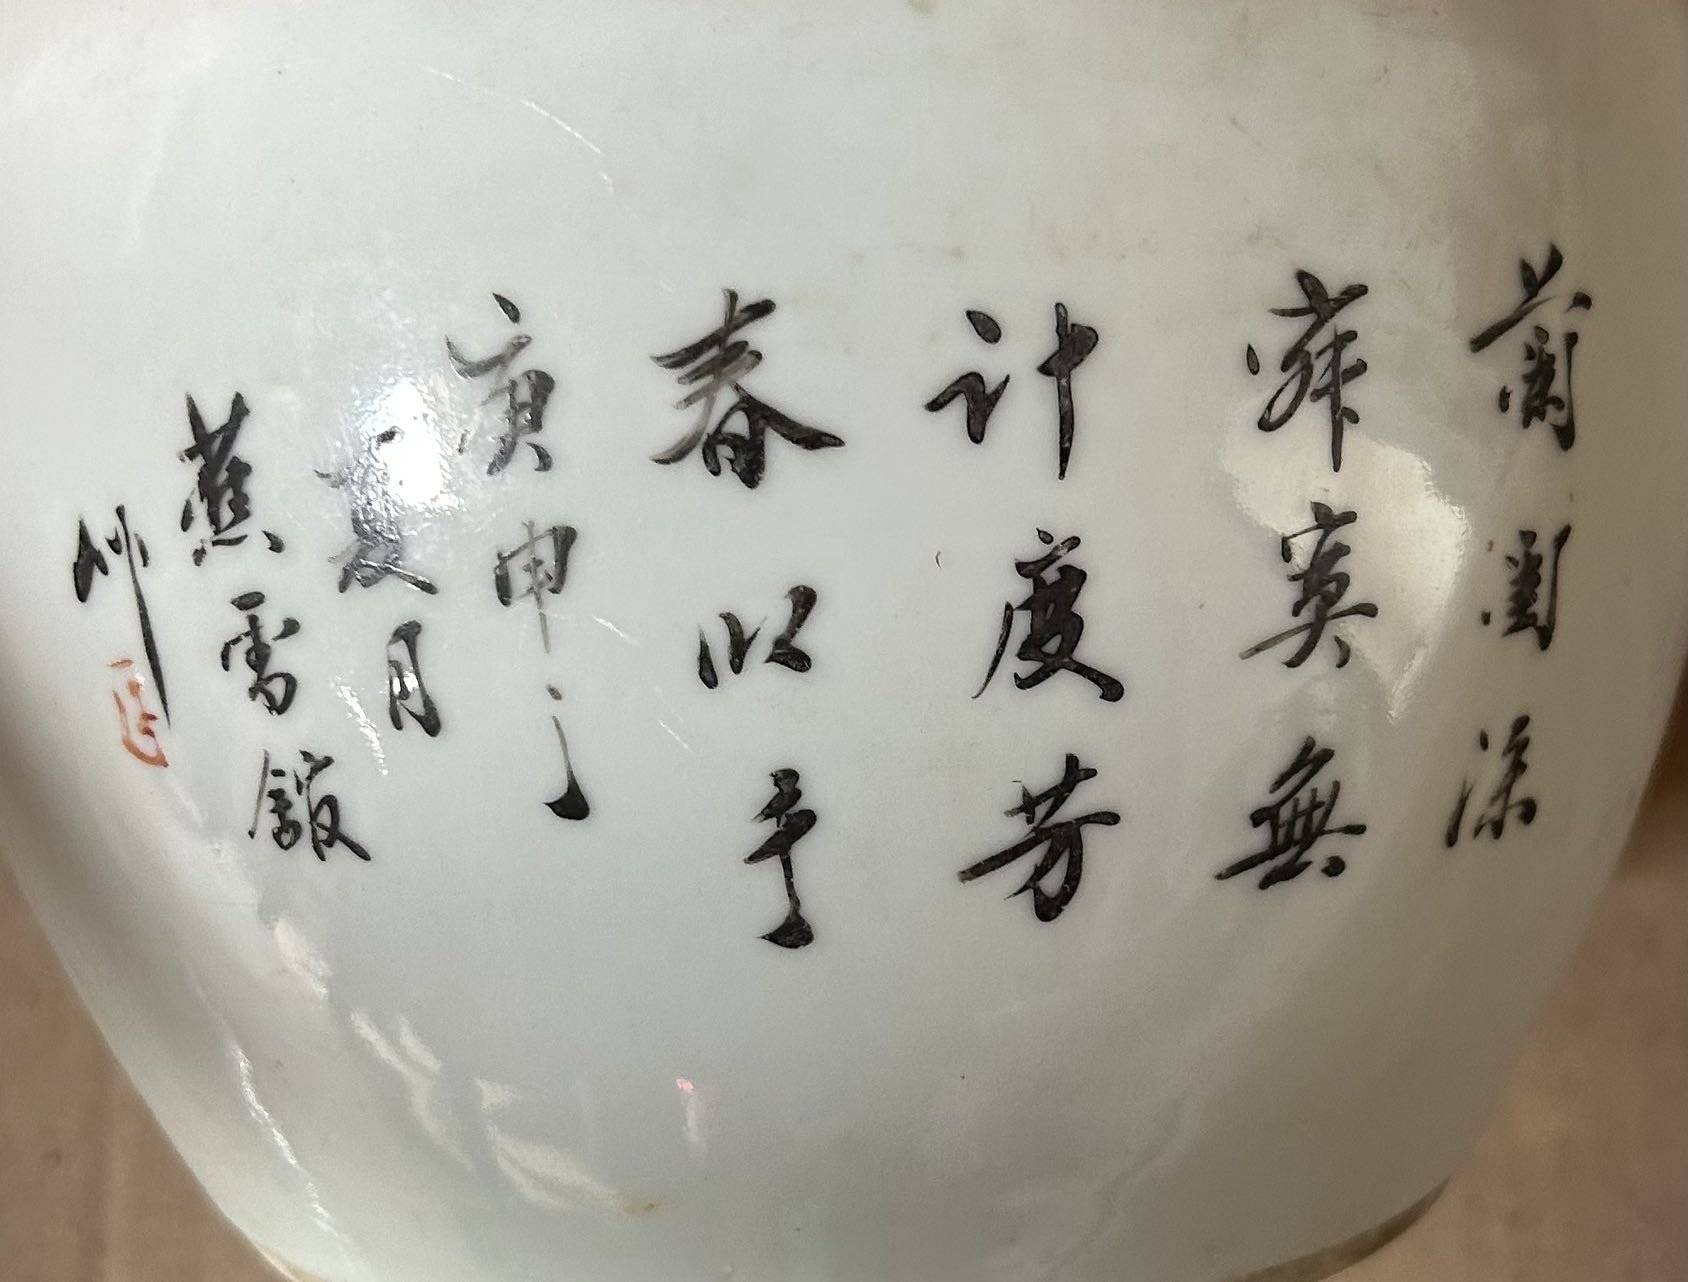 蘭閨深
寂寞無
計度芳
春以乎
庚申之
夏月
蕉雪館
作